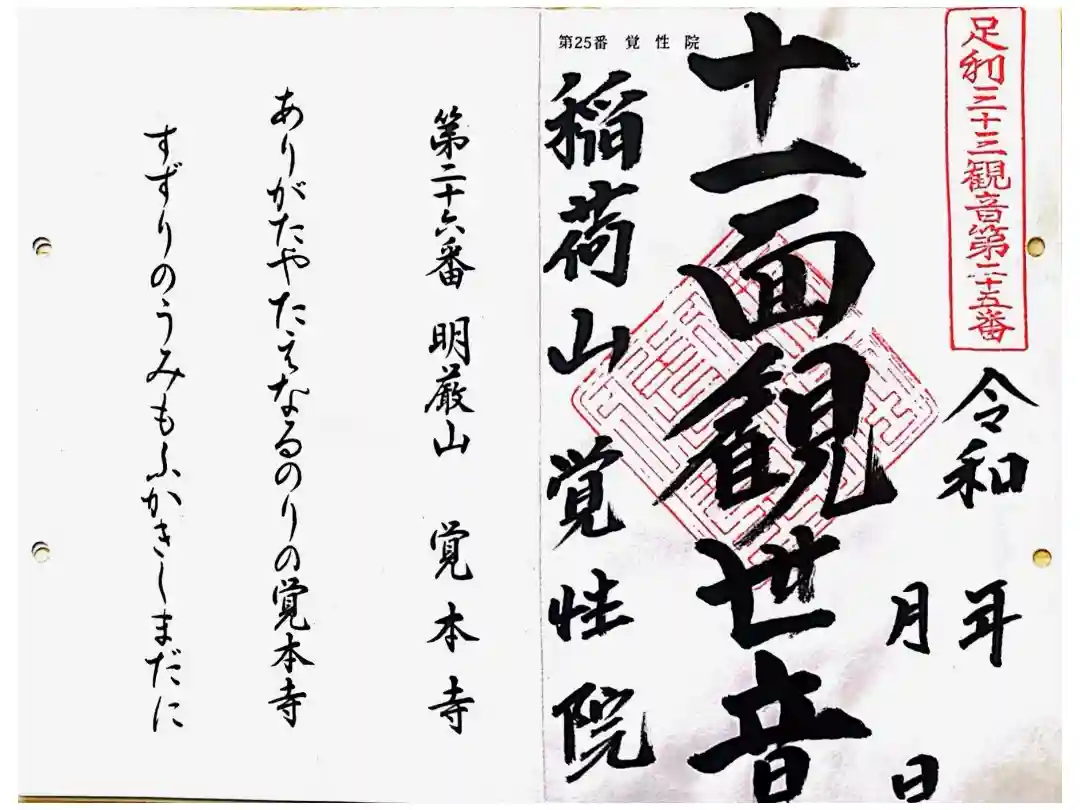 足利三十三観音第二十五番
令和 年
月 日
十一面観世音
第25番 覚性院
稲荷山 覚性院
第二十六番 明厳山 覚本寺
ありがたやたえなるのりの覚本寺
すずりのうみもふかきしまだに